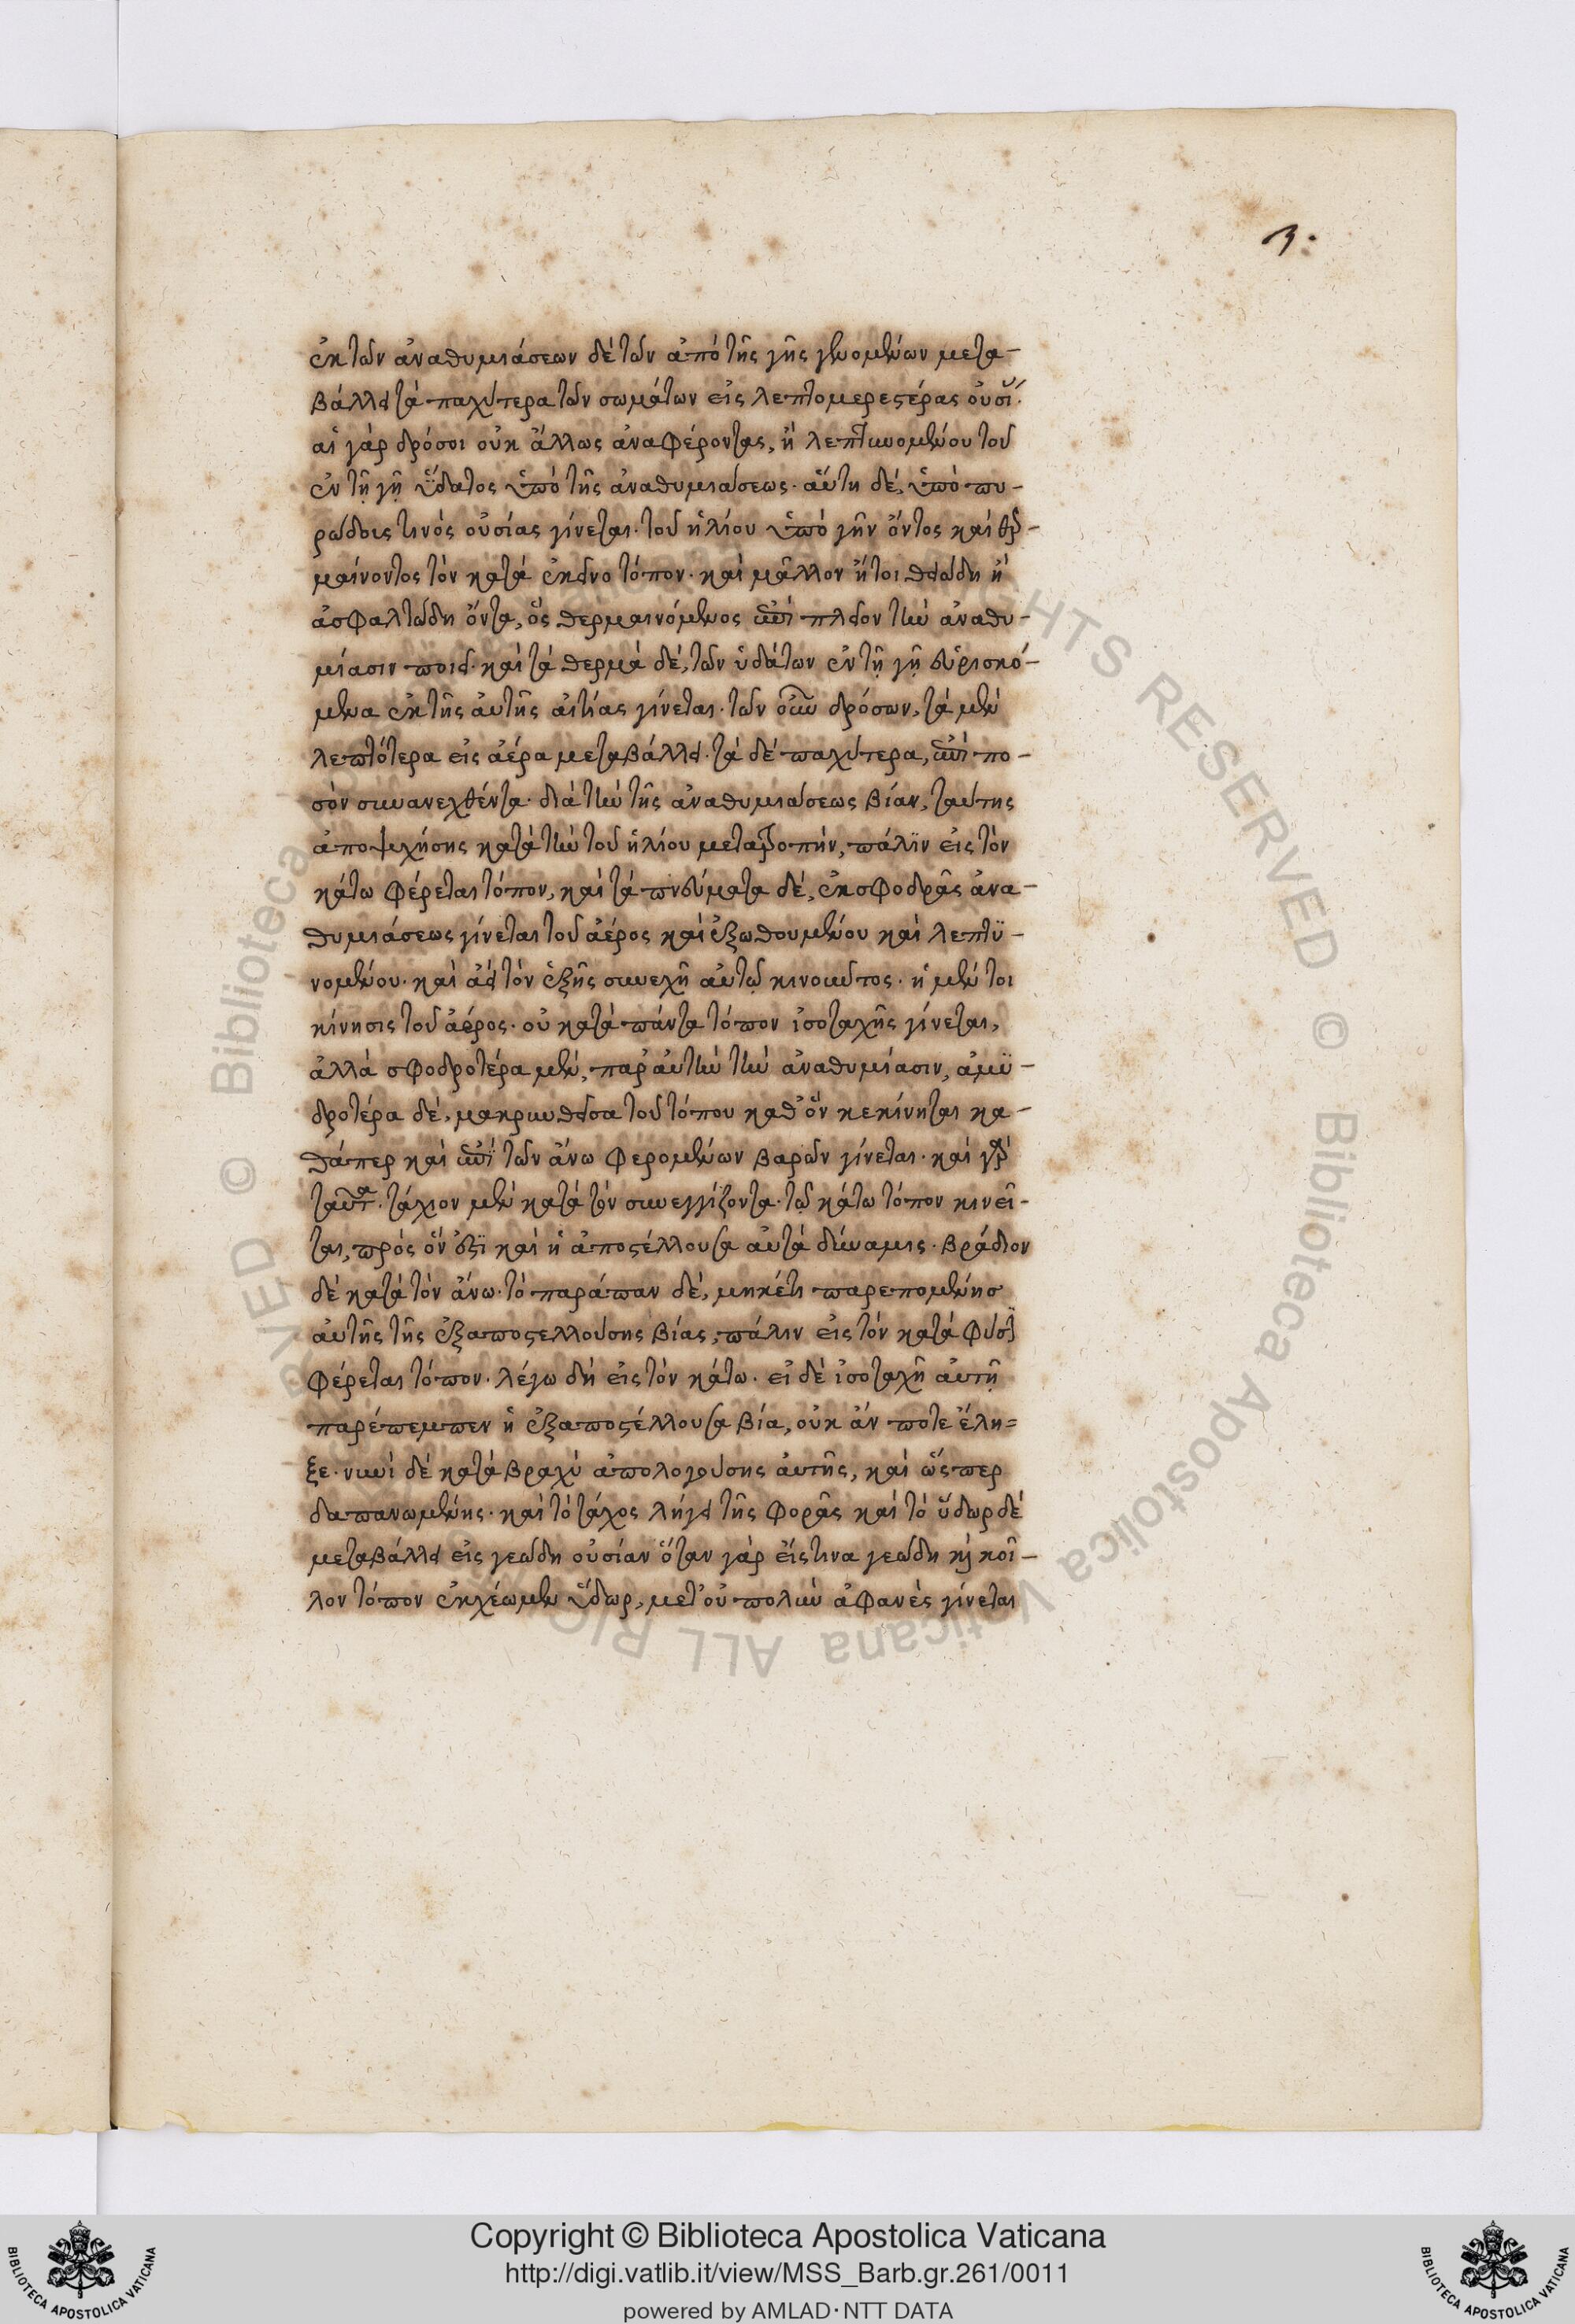 3.
ἐκ τῶν ἀναθυμιάσεων δὲ τῶν ἀπὸ τῆς γῆς γινομένων μετα-
βάλλει τὰ παχύτερα τῶν σωμάτων εἰς λεπτομερεστέρας οὐσί.
αἱ γὰρ δρόσοι οὐκ ἄλλως ἀναφέρονται, ἢ λεπτυνομένου τοῦ
ἐν τῇ γῇ ὕδατος ὑπὸ τῆς ἀναθυμιάσεως. αὕτη δὲ, ὑπὸ πυ-
ρώδους τινὸς οὐσίας γίνεται. τοῦ ἡλίου ὑπὸ γῆν ὄντος καὶ θερ-
μαίνοντος τὸν κατὰ ἐκεῖνο τόπον. καὶ μᾶλλον ἤτοι θειώδη ἢ
ἀσφαλτώδη ὄντα, ὃς θερμαινόμενος ἐπὶ πλεῖον τὴν ἀναθυ-
μίασιν ποιεῖ. καὶ τὰ θερμὰ δὲ, τῶν ὑδάτων ἐν τῇ γῇ εὑρισκό-
μενα ἐκ τῆς αὐτῆς αἰτίας γίνεται. τῶν οὖν δρόσων, τὰ μὲν
λεπτότερα εἰς ἀέρα μεταβάλλει. τὰ δὲ παχύτερα, ἐπὶ πο-
σὸν συνανεχθέντα. διὰ τὴν τῆς ἀναθυμιάσεως βίαν, ταύτης
ἀποψυχήσης κατὰ τὴν τοῦ ἡλίου μετατροπὴν, πάλιν εἰς τὸν
κάτω φέρεται τόπον, καὶ τὰ πνεύματα δὲ, ἐκ σφοδρᾶς ἀνα-
θυμιάσεως γίνεται τοῦ ἀέρος καὶ ἐξωθουμένου καὶ λεπτυ-
νομένου. καὶ ἀεὶ τὸν ἑξῆς συνεχῆ αὐτῷ κινοῦντος. ἡ μέν τοι
κίνησις τοῦ ἀέρος. οὐ κατὰ πάντα τόπον ἰσοταχῆς γίνεται,
ἀλλὰ σφοδροτέρα μὲν, παρ' αὐτὴν τὴν ἀναθυμίασιν, ἀμυ-
δροτέρα δὲ, μακρυνθεῖσα τοῦ τόπου καθ' ὃν κεκίνηται κα-
θάπερ καὶ ἐπὶ τῶν ἄνω φερομένων βαρῶν γίνεται. καὶ γὰρ
ταῦτα. τάχιον μὲν κατὰ τὸν συνεγγίζοντα. τῷ κάτω τόπον κινεῖ-
ται, πρὸς ὃν ἐστὶ καὶ ἡ ἀποστέλλουσα αὐτὰ δύναμις. βράδιον
δὲ κατὰ τὸν ἄνω. τὸ παράπαν δὲ, μηκέτι παρεπομένης
αὐτῆς τῆς ἐξαποστελλούσης βίας, πάλιν εἰς τὸν κατὰ φύσιν
φέρεται τόπον. λέγω δὴ εἰς τὸν κάτω. εἰ δὲ ἰσοταχῆ αὐτῇ
παρέπεμπεν ἡ ἐξαποστέλλουσα βία, οὐκ ἄν ποτε ἔλη=
ξε. νυνὶ δὲ κατὰ βραχὺ ἀπολογούσης αὐτῆς, καὶ ὥσπερ
δαπανωμένης. καὶ τὸ τάχος λήγει τῆς φορᾶς καὶ τὸ ὕδωρ δὲ
μεταβάλλει εἰς γεώδη οὐσίαν ὅταν γὰρ εἴς τινα γεώδη καὶ κοῖ-
λον τόπον ἐκχέωμεν ὕδωρ, μετ' οὐ πολὺν ἀφανὲς γίνεται
© Biblioteca Apostolica Vaticana ALL RIGHTS RESERVED
Copyright © Biblioteca Apostolica Vaticana
http://digi.vatlib.it/view/MSS_Barb.gr.261/0011
powered by AMLAD·NTT DATA
BIBLIOTECA APOSTOLICA VATICANA
BIBLIOTECA APOSTOLICA VATICANA